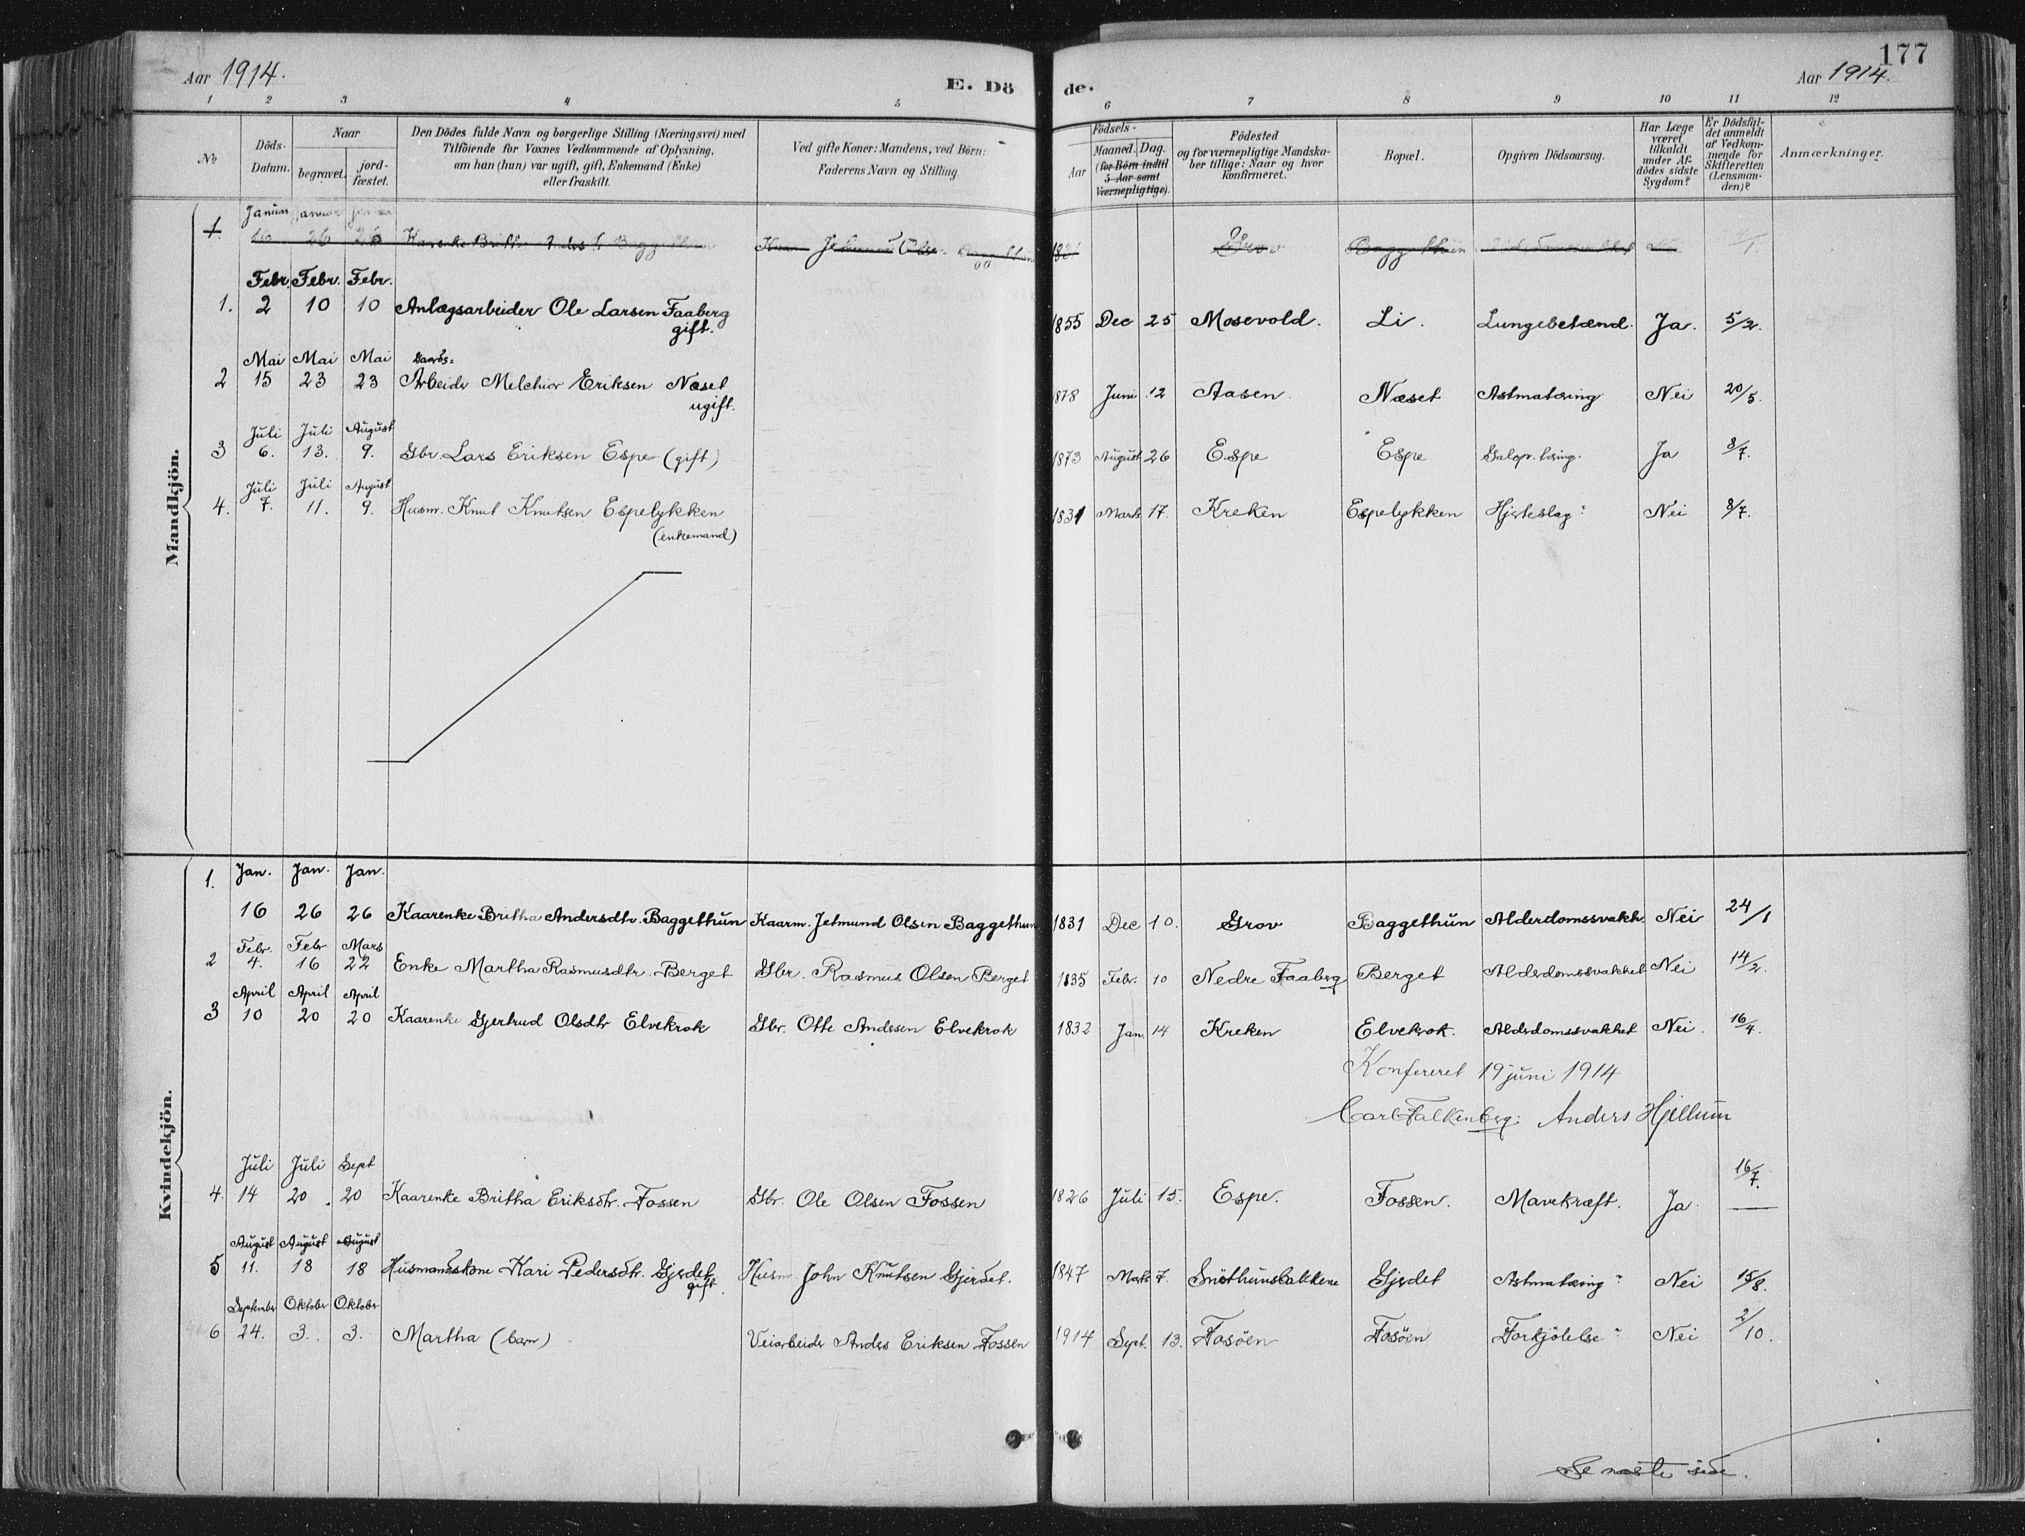 Aar 1914.
E. Dö
de.
177
Aar 1914.
1 2 3 4 5 6 7 8 9 10 11 12
No
Döds-Datum.
Naar
begravet.
jord-fæstet.
Den Dödes fulde Navn og borgerlige Stilling (Næringsvei) med
Tilföiende for Voxnes Vedkommende af Oplysning,
om han (hun) var ugift, gift, Enkemand (Enke)
eller fraskilt.
Ved gifte Koner: Mandens, ved Börn:
Faderens Navn og Stilling
Födsels-
Aar
Maaned. Dag.
(for Börn indtil
5 Aar samt
Værnepligtige).
Födested
og for værnepligtige Mandska-
ber tillige: Naar og hvor
konfirmeret.
Bopæl.
Opgiven Dödsaarsag.
Har Læge
været
tilkaldt
under Af-
dödes sidste
Sygdom?
Er Dödsfal-
det anmeldt
af Vedkom-
mende for
Skifteretten
(Lensman-
den)?
Anmærkninger.
Mandkjön.
1. Januar Januar
16 26 26
Febr. Febr. Febr.
1. 2 10 10 Anlægsarbeider Ole Larsen Faaberg gift. 1855 Dec 25 Mosevold. Li. Lungebetænd. Ja. 5/2.
Mai Mai Mai
2 15 23 23 Arbeider Melchior Eriksen Næset ugift. 1878 Juni 12 Aasen. Næset Astmatæring Nei 20/5.
Juli Juli August
3 6. 13. 9. Gbr. Lars Eriksen Espe (gift) 1873 August 26 Espe Espe Galop. tæring. Ja 8/7.
Juli Juli August
4. 7. 11. 9. Husm. Knut Knutsen Espelykken (enkemand) 1831 Marts 17. Kreken Espelykken Hjerteslag? Nei 8/7.
Kvindekjön.
1. Jan. Jan. Jan.
16 26 26 Kaarenke Britha Andersdtr. Baggethun Kaarm. Jetmund Olsen Baggethun 1831 Dec 10. Grov Baggethun Alderdomssvakh. Nei 24/1
Febr. Febr Mars
2 4. 16 22 Enke Martha Rasmusdtr. Berget Gbr. Rasmus Olsen Berget 1835 Febr. 10 Nedre Faaberg Berget Alderdomssvakhet Nei 14/2.
April April April
3 10 20 20 Kaarenke Gjertrud Olsdtr Elvekrok Gbr. Otte Andersen Elvekrok 1832 Jan. 14 Kreken Elvekrok. Alderdomssvakhet Nei. 16/4.
Konfereret 19 juni 1914
Carl Falkenberg. Anders Hjellum
Juli Juli Sept
4. 14 20. 20 Kaarenke Britha Eriksdtr. Fossen Gbr. Ole Olsen Fossen 1826 Juli 15. Espe. Fossen. Mavekræft. Ja. 16/7.
August August August
5 11. 18 18 Husmandskone Kari Pedersdtr. Gjerdet gift. Husm. John Knutsen Gjerdet. 1847 Mars 7. Snöthunsbakkene Gjerdet Astmatæring? Nei 15/8.
September Oktober Oktober
6 24. 3. 3. Martha (barn) Veiarbeider Anders Eriksen Fossen 1914 Sept. 13. Fosöen Fosöen Forkjölelse? Nei 2/10.
Se næste side.